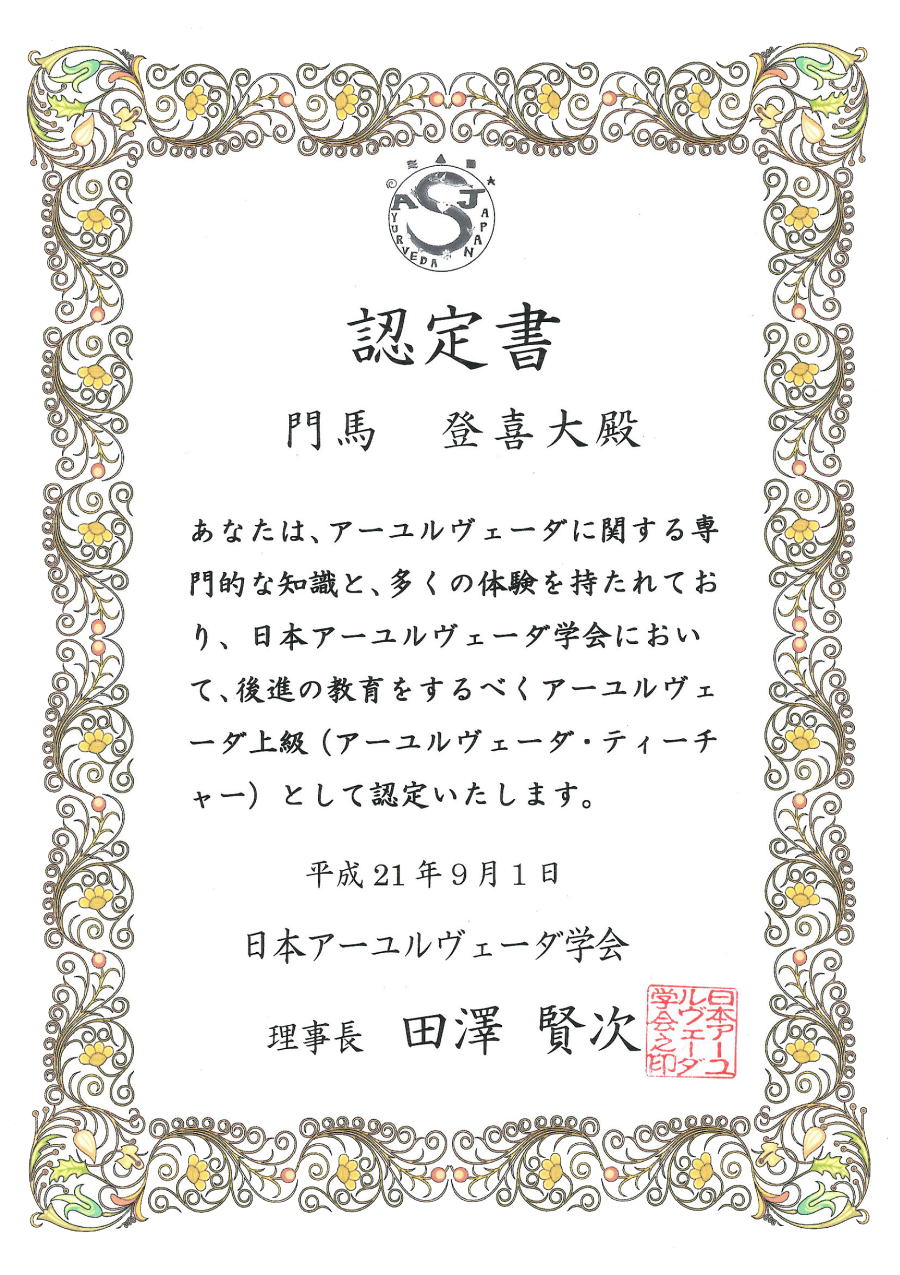 ASJ
AYURVEDA JAPAN
認定書
門馬　登喜大殿
あなたは、アーユルヴェーダに関する専
門的な知識と、多くの体験を持たれてお
り、日本アーユルヴェーダ学会におい
て、後進の教育をするべくアーユルヴェ
ーダ上級（アーユルヴェーダ・ティーチ
ャー）として認定いたします。
平成 21 年 9 月 1 日
日本アーユルヴェーダ学会
理事長　田澤　賢次
日本アーユ
ルヴェーダ
学会之印